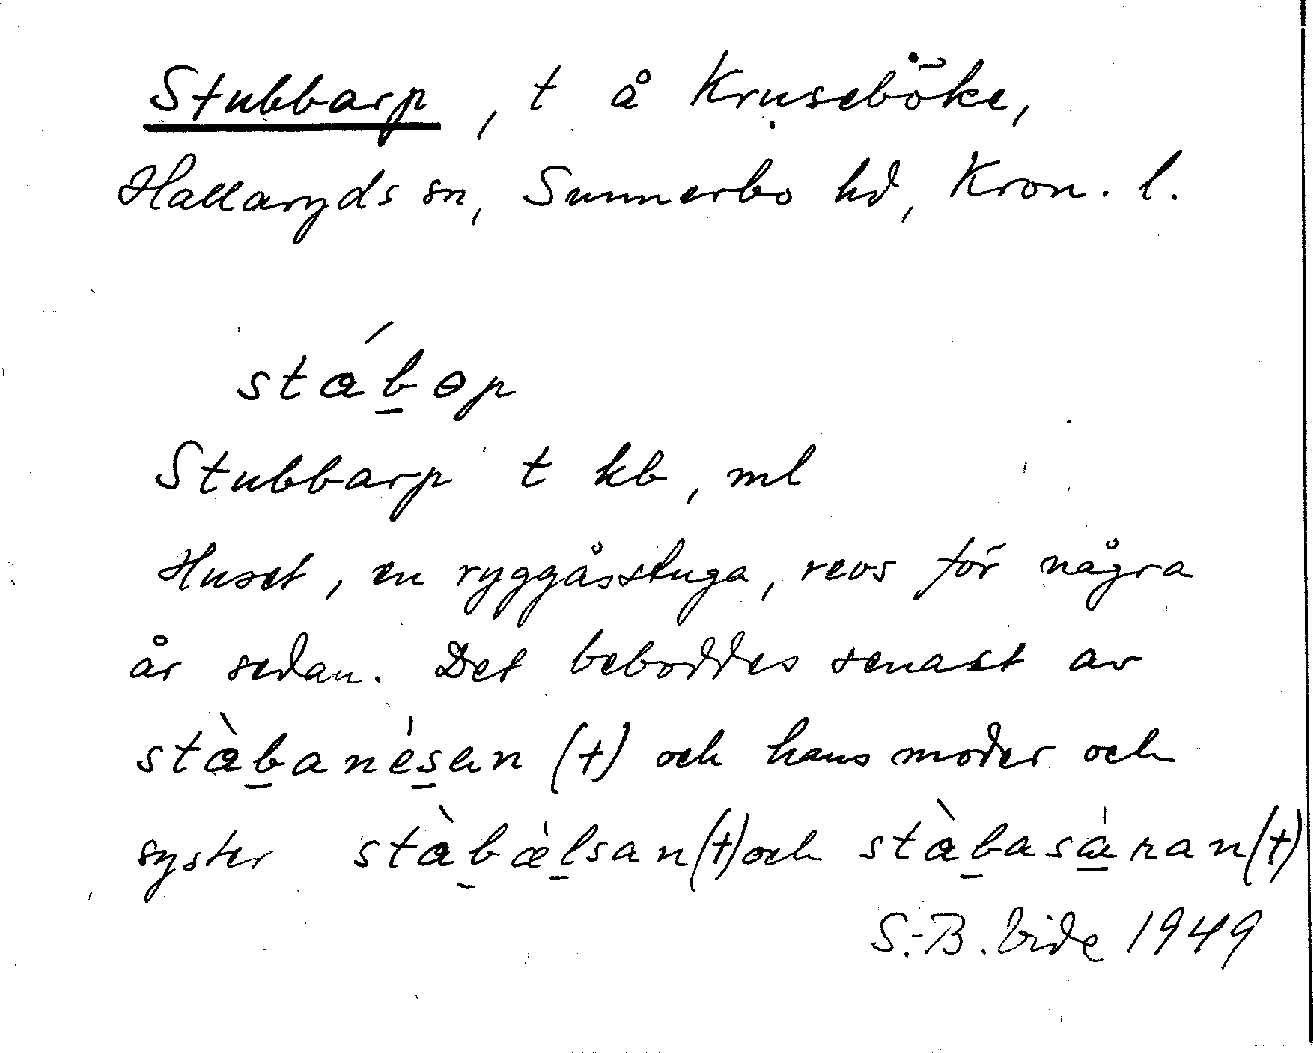 Stubbarp, t å Kruseböke,
Hallaryds sn, Sunnerbo hd, Kron. l.
stábɵp
Stubbarp t kb, ml
Huset, en ryggåsstuga, revs för några
år sedan. Det beboddes senast av
stàbanèsen (†) och hans moder och
syster stàbælsan (†) och stàbasàran (†)
S.-B. Vide 1949